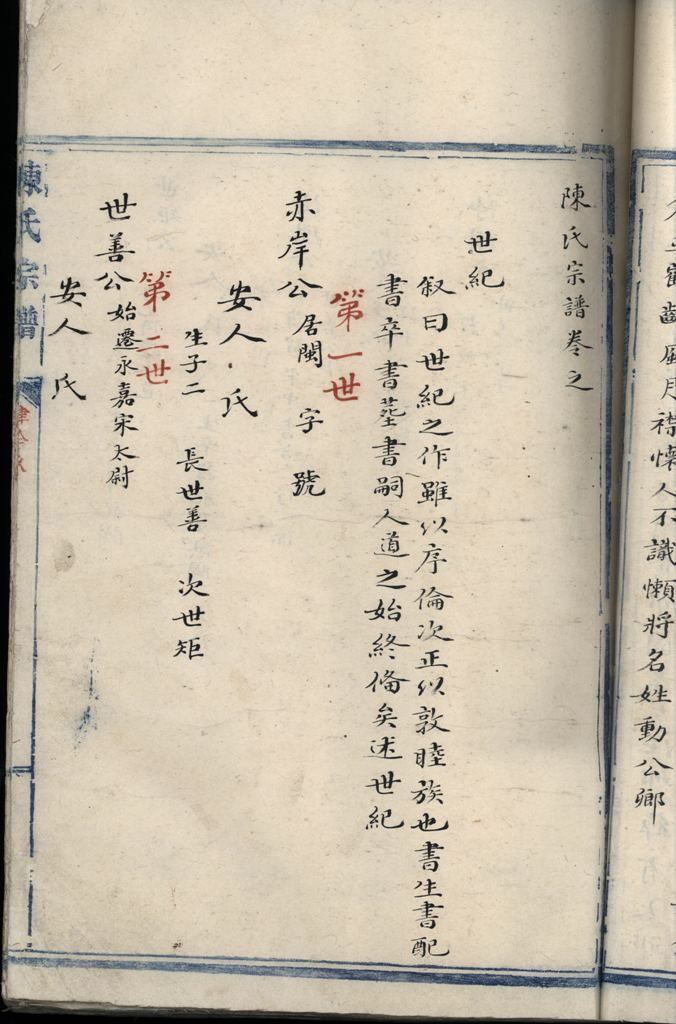 月襟懷人不識懶將名姓動公卿
陳氏宗譜卷之
世紀
叙曰世紀之作雖以序倫次正以敦睦族也書生書配
書卒書塟書嗣人道之始終俻矣述世紀
第一世
赤岸公居閩 字 號
安人 氏
生子二 長世善 次世矩
第二世
世善公始遷永嘉宋太尉
安人 氏
陳氏宗譜